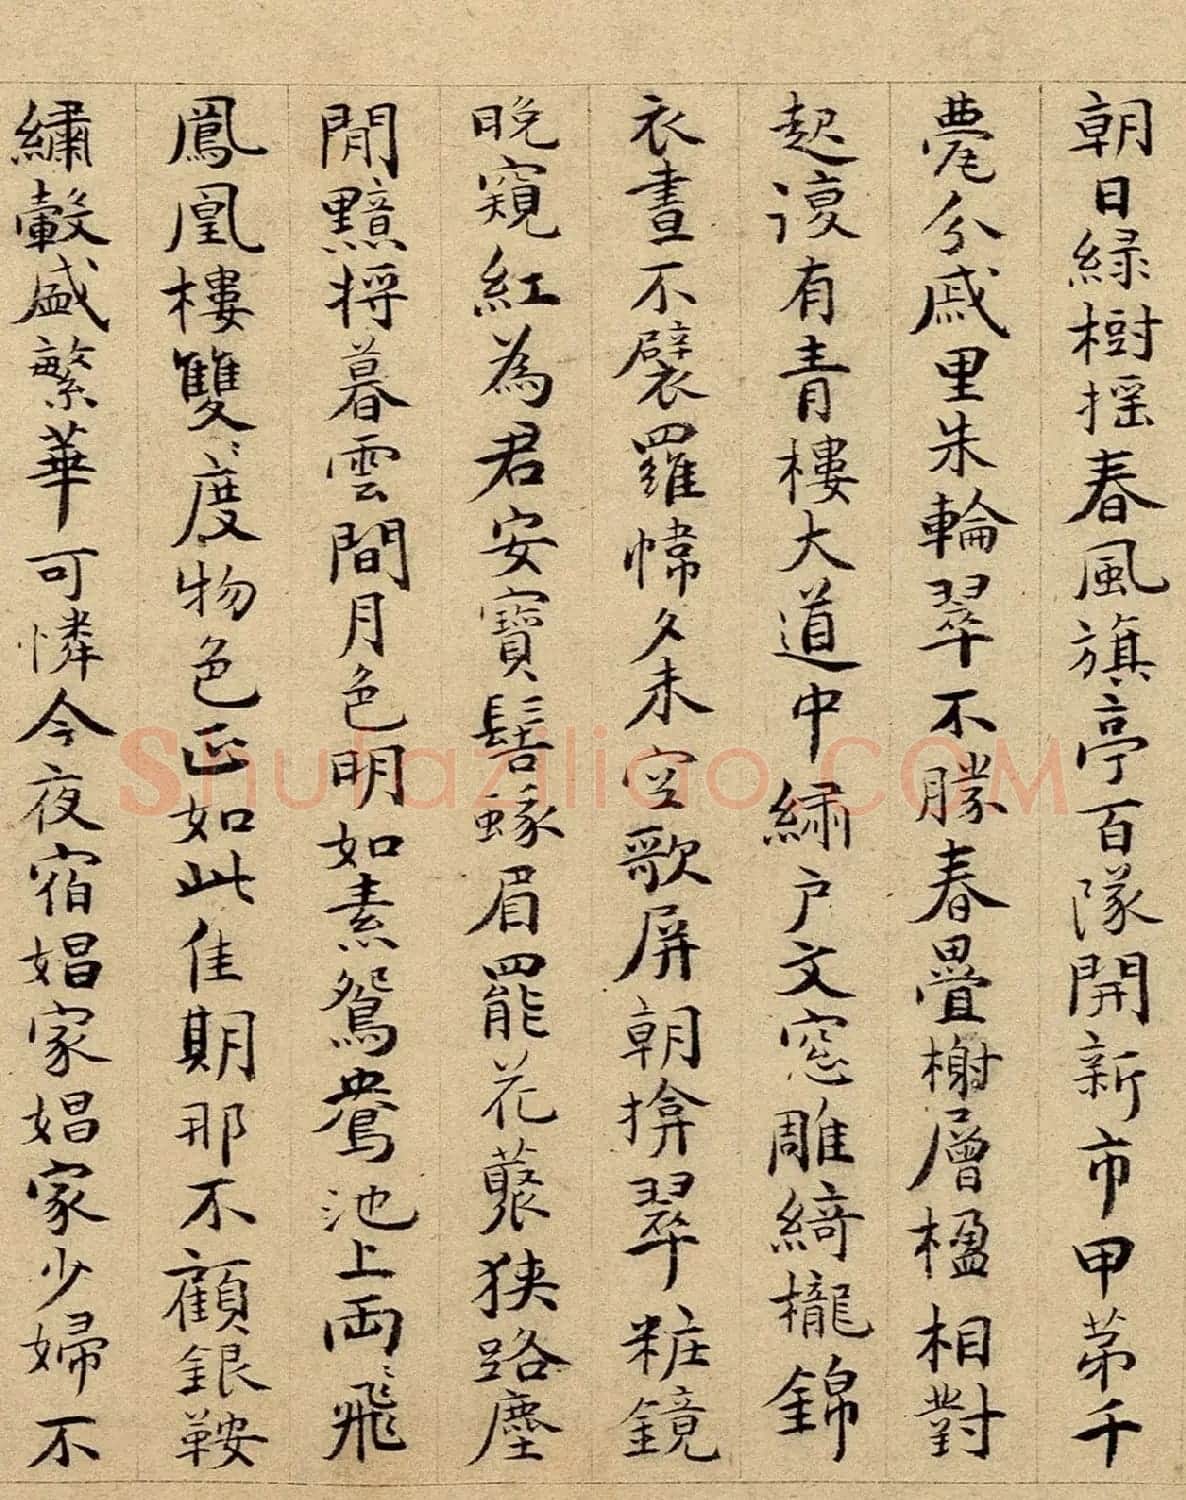 朝日緑樹揺春風旗亭百隊開新市甲苐千
甍分戚里朱輪翠不勝春疊榭層楹相對
起復有青樓大道中繡户文窓雕綺櫳錦
衣晝不襞羅幃夕未空歌屏朝掩翠粧鏡
晚窺紅為君安寶髻蛾眉罷花藂狭路塵
間黯将暮雲間月色明如素鴛鴦池上両〻飛
鳳凰樓雙〻度物色正如此佳期那不顧銀鞍
繡轂盛繁華可憐今夜宿娼家娼家少婦不
Shufaziliao.COM